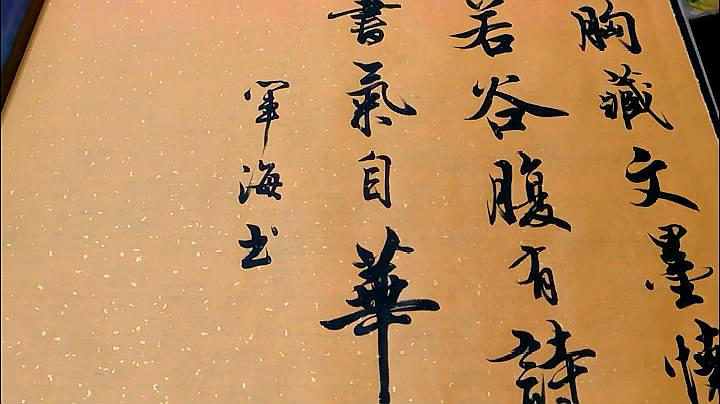 胸藏文墨懷
若谷腹有詩
書氣自華
军海书